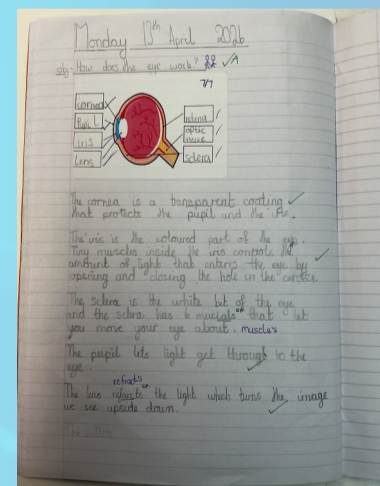 Monday 13th April 2026
Obj: How does the eye work?
7/7
cornea
Pupil
iris
Lens
retina
optic
nerve
sclera
The cornea is a transparent coating
that protects the pupil and the
The iris is the coloured part of the eye.
Tiny muscles inside the iris control the
amount of light that enters the eye by
opening and closing the hole in the
The sclera is the white bit of the eye
and the sclera has 6 that let
you move your eye about. muscles
The pupil lets light get through to the
eye.
refracts
The lens the light which turns the image
we see upside down.